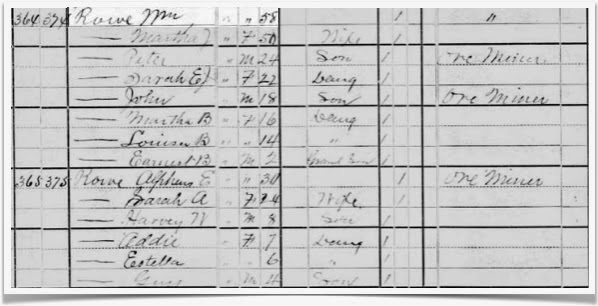 364 374 Rowe Wm " " 58 1 "
— Martha J " F 50 Wife 1
— Peter " M 24 Son 1 Ore Miner
— Sarah E " F 22 Daug 1
— John " M 18 Son 1 Ore Miner
— Martha B " F 16 Daug 1
— Louisa B " " 14 " 1
— Earnest B " M 2 Grand Son 1
365 375 Rowe Alpheus E " " 30 1 Ore Miner
— Sarah A " F 24 Wife 1
— Harvey W " M 8 Son 1
— Addie " F 7 Daug 1
— Estella " " 6 " 1
— " M 4 Son 1